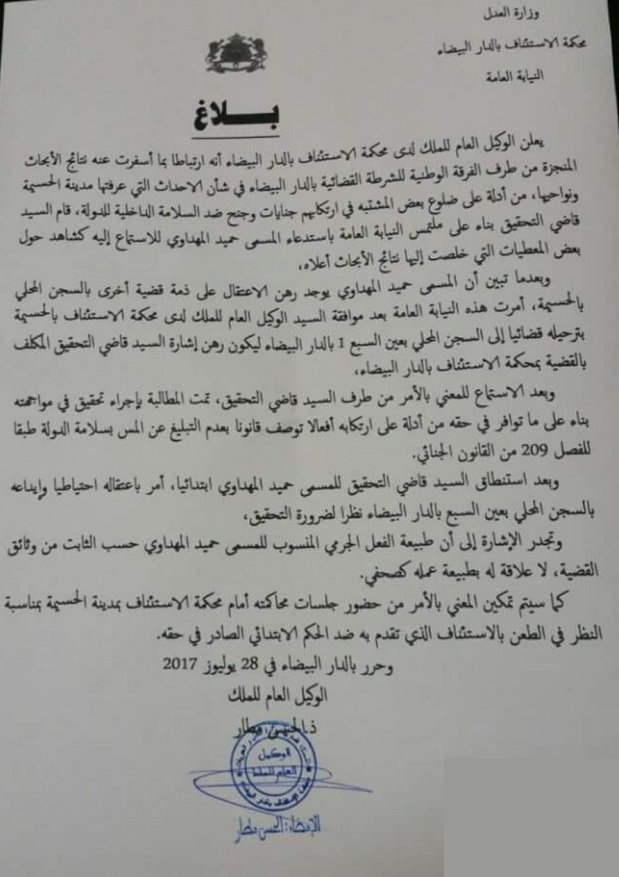 وزارة العدل
محكمة الاستئناف بالدار البيضاء
النيابة العامة
بـــلاغ
يعلن الوكيل العام للملك لدى محكمة الاستئناف بالدار البيضاء أنه ارتباطا بما أسفرت عنه نتائج الأبحاث
المنجزة من طرف الفرقة الوطنية للشرطة القضائية بالدار البيضاء في شأن الاحداث التي عرفتها مدينة الحسيمة
ونواحيها، من أدلة على ضلوع بعض المشتبه في ارتكابهم جنايات وجنح ضد السلامة الداخلية للدولة، قام السيد
قاضي التحقيق بناء على ملتمس النيابة العامة باستدعاء المسمى حميد المهداوي للاستماع إليه كشاهد حول
بعض المعطيات التي خلصت إليها نتائج الأبحاث أعلاه،
وبعدما تبين أن المسمى حميد المهداوي يوجد رهن الاعتقال على ذمة قضية أخرى بالسجن المحلي
بالحسيمة، أمرت هذه النيابة العامة بعد موافقة السيد الوكيل العام للملك لدى محكمة الاستئناف بالحسيمة
بترحيله قضائيا إلى السجن المحلي بعين السبع 1 بالدار البيضاء ليكون رهن إشارة السيد قاضي التحقيق المكلف
بالقضية بمحكمة الاستئناف بالدار البيضاء،
وبعد الاستماع للمعني بالأمر من طرف السيد قاضي التحقيق، تمت المطالبة بإجراء تحقيق في مواجهته
بناء على ما توافر في حقه من أدلة على ارتكابه أفعالا توصف قانونا بعدم التبليغ عن المس بسلامة الدولة طبقا
للفصل 209 من القانون الجنائي.
وبعد استنطاق السيد قاضي التحقيق للمسمى حميد المهداوي ابتدائيا، أمر باعتقاله احتياطيا وإيداعه
بالسجن المحلي بعين السبع بالدار البيضاء نظرا لضرورة التحقيق،
وتجدر الإشارة إلى أن طبيعة الفعل الجرمي المنسوب للمسمى حميد المهداوي حسب الثابت من وثائق
القضية، لا علاقة له بطبيعة عمله كصحفي.
كما سيتم تمكين المعني بالأمر من حضور جلسات محاكمته أمام محكمة الاستئناف بمدينة الحسيمة بمناسبة
النظر في الطعن بالاستئناف الذي تقدم به ضد الحكم الابتدائي الصادر في حقه.
وحرر بالدار البيضاء في 28 يوليوز 2017
الوكيل العام للملك
ذ.الحسن مطار
الوكيل
العام للملك
الإمضاء: الحسن مطار